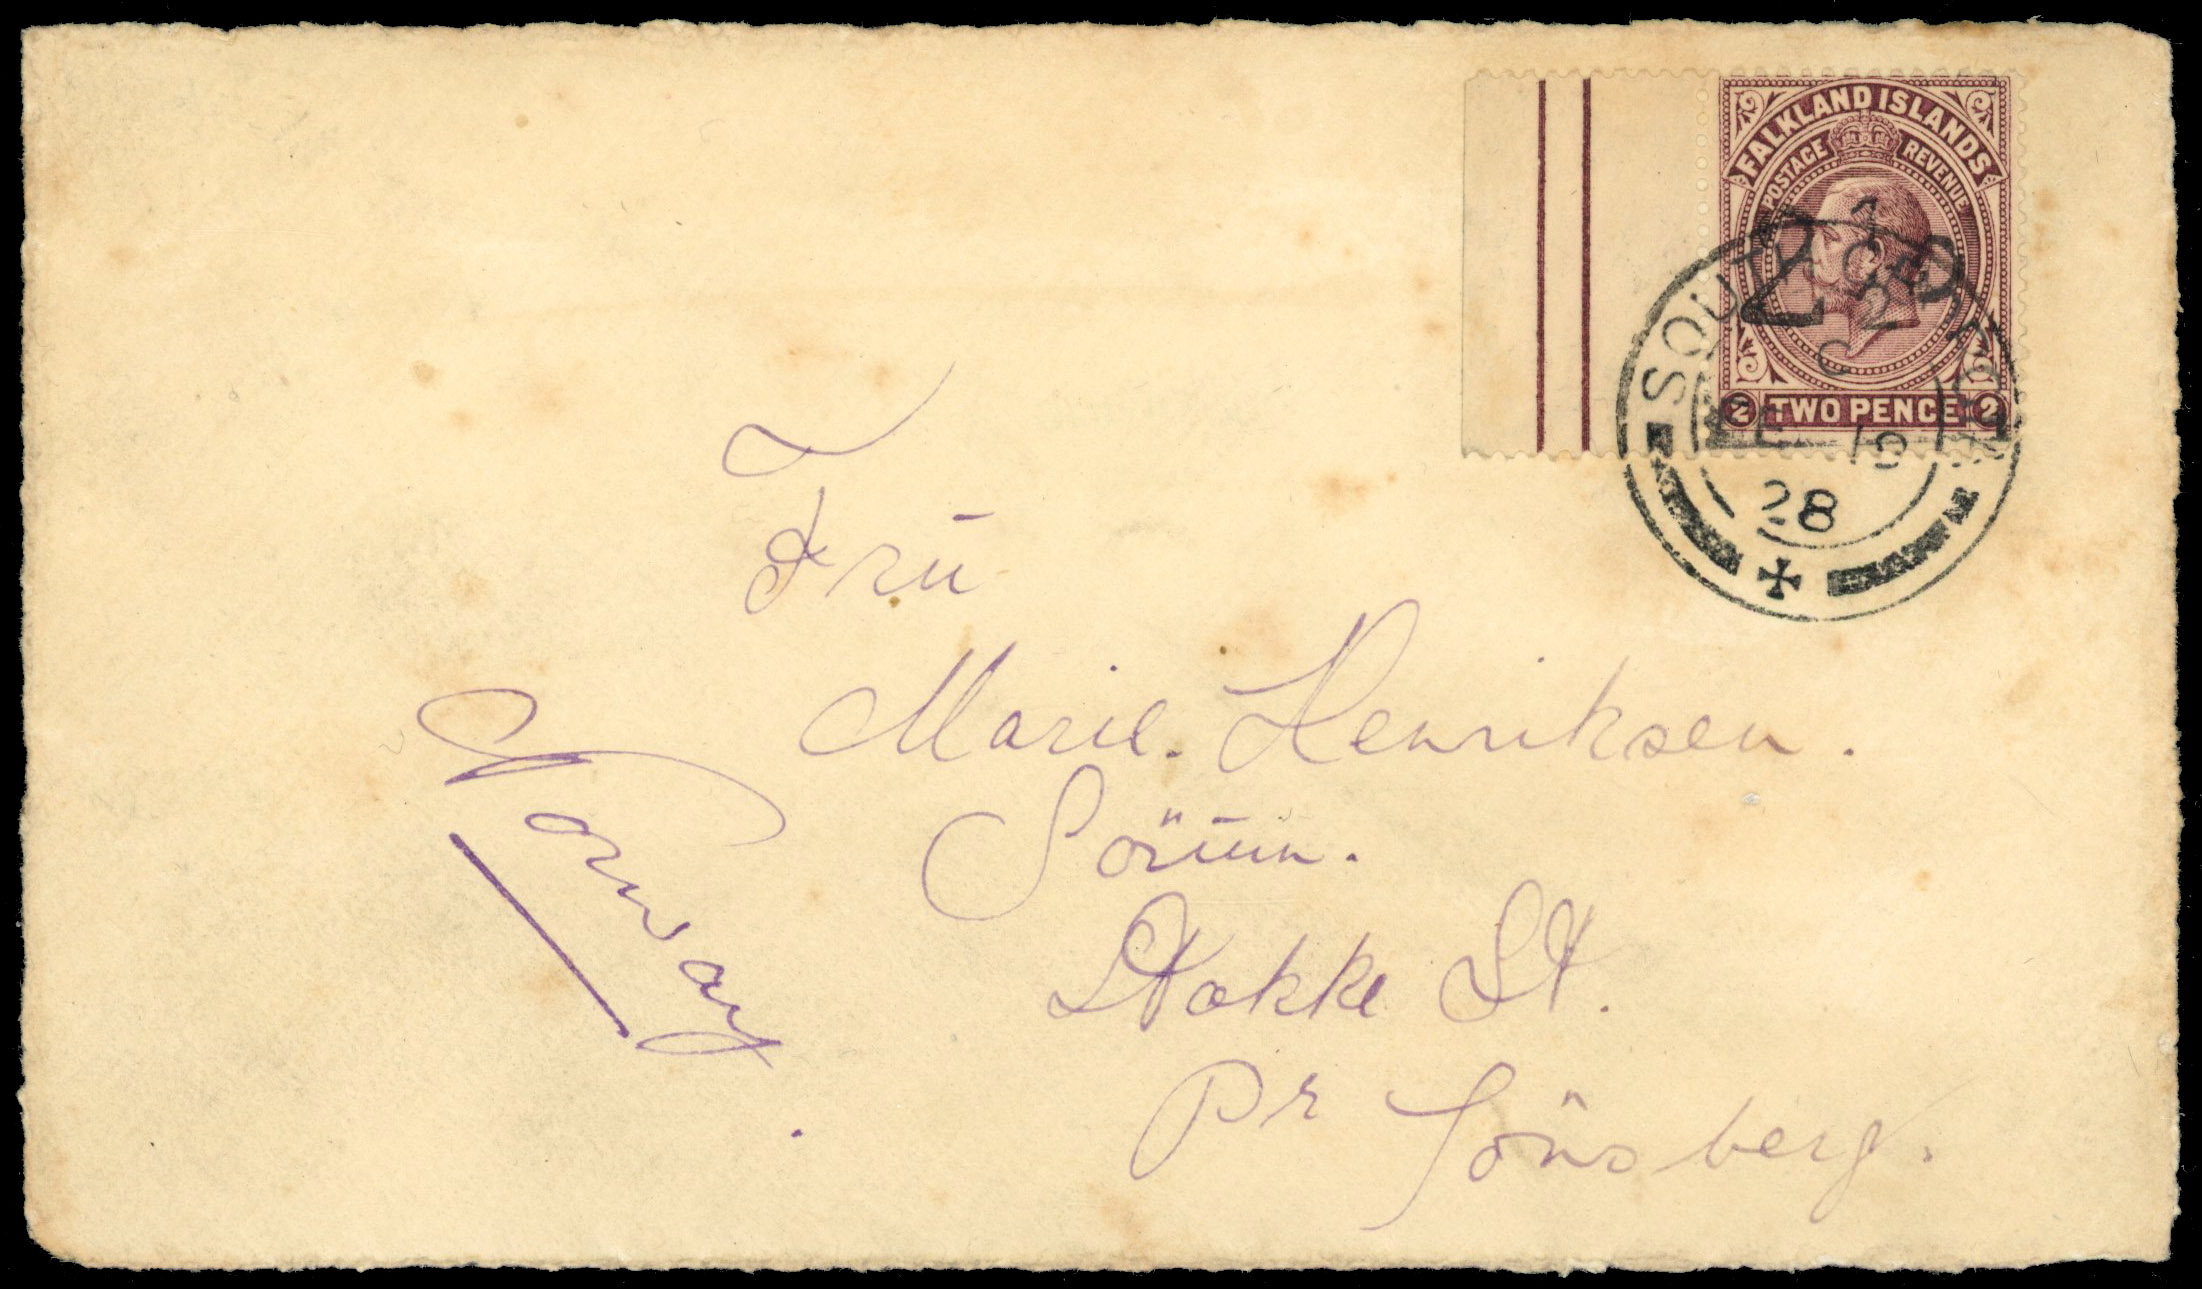 FALKLAND ISLANDS
POSTAGE REVENUE
2½D
2 TWO PENCE 2
SOUTH GEORGIA
C
FE 19
28
Frū
Marie. Henriksen.
Stokke St.
Pr Tönsberg.
Norway.